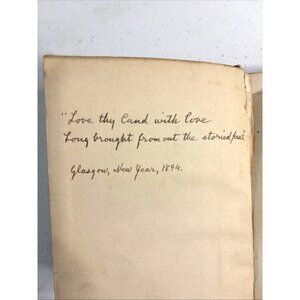 "Love thy land with love
Long brought from out the storied past
Glasgow, New Year, 1894.